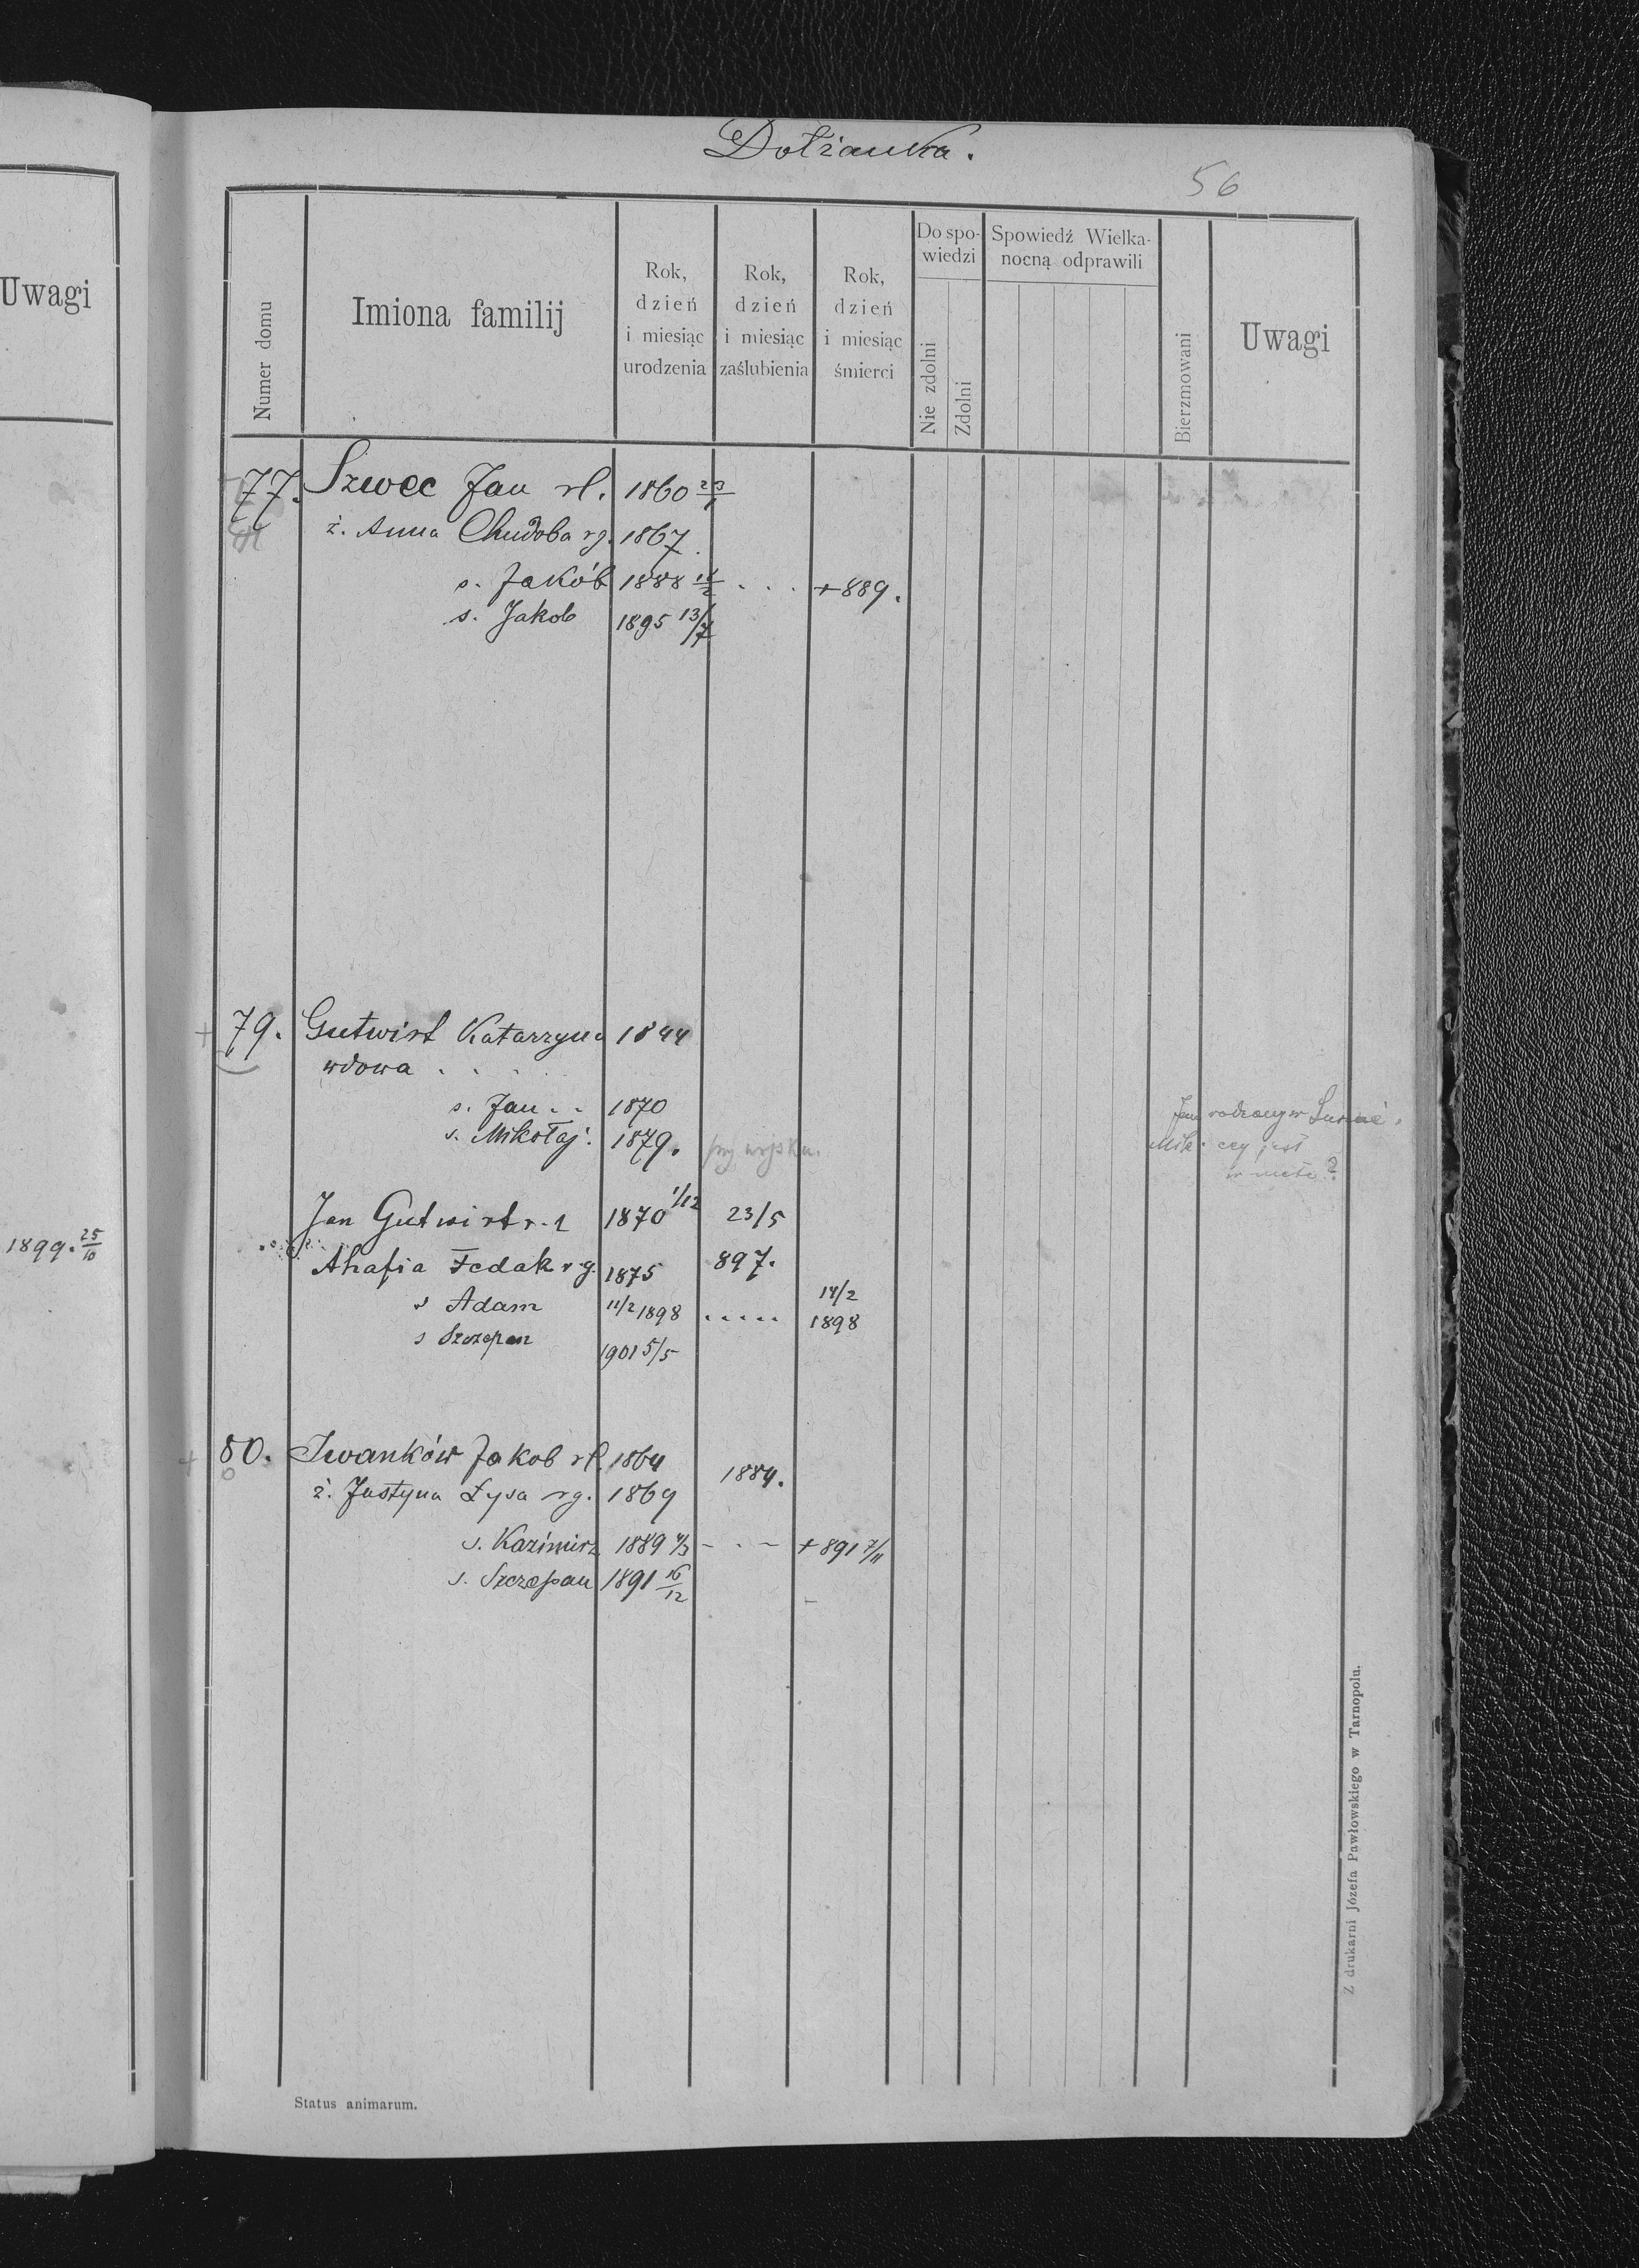 Uwagi
1899. 25/10
Dołżanka.
56
Numer domu
Imiona familij
Rok, dzień i miesiąc urodzenia
Rok, dzień i miesiąc zaślubienia
Rok, dzień i miesiąc śmierci
Do spowiedzi
Nie zdolni
Zdolni
Spowiedź Wielkanocną odprawili
Bierzmowani
Uwagi
77. Szwec Jan rł. 1860 23/1
ż. Anna Chudoba rg. 1867.
s. Jakób 1888 . . . +889.
s. Jakob 1895 13/7
79. Gutwirt Katarzyna 1844
wdowa . . .
s. Jan . . 1870
s. Mikołaj. 1879. przy wojsku.
Jan rodzony w
Mik. czy jest
?
Jan Gutwirt r. ł 1870 1/12 23/5
Ahafia Fedak r.g. 1875 897.
s Adam 11/2 1898 ..... 14/2 1898
s Szczepan 1901 5/5
80. Iwanków Jakob rł. 1864 1884.
ż. Justyna Łysa rg. 1869
s. Kazimirz 1889 4/3 - . - +891 7/11
s. Szczepan 1891 16/12
Status animarum.
Z drukarni Józefa Pawłowskiego w Tarnopolu.